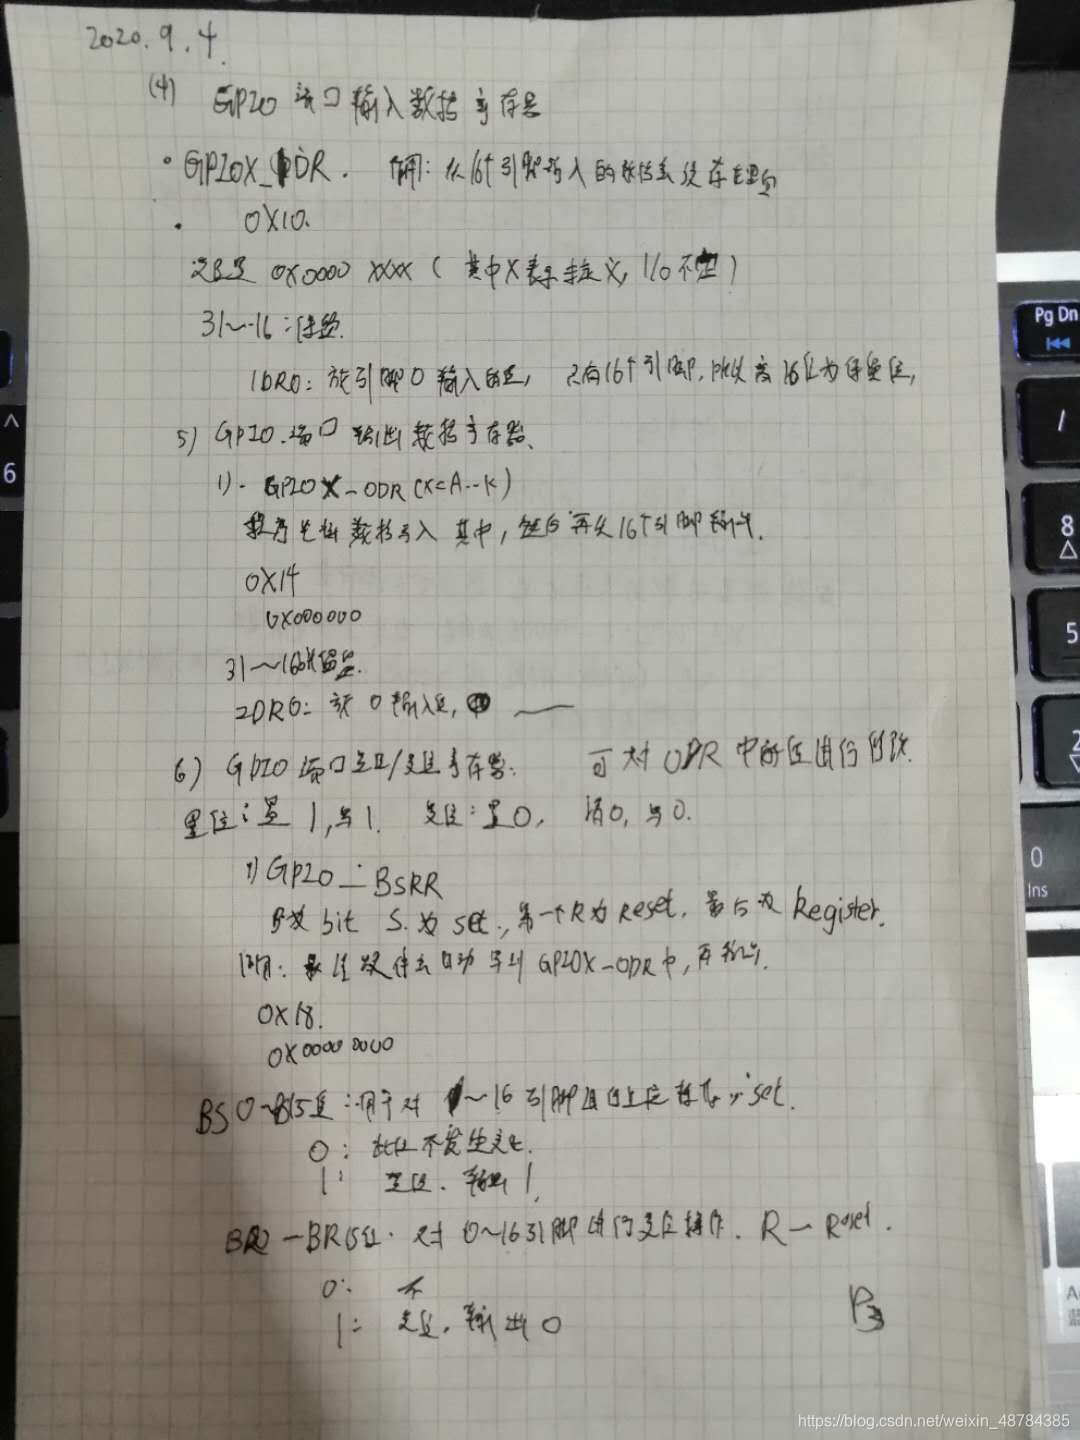 2020.9.4
(4) GPIO 端口输入数据寄存器
GPIOX_IDR. 作用:从16个引脚输入的数据
0X10.
0X0000 XXXX ( 其中X表示未定义, 1/0不定 )
31~16:保留.
IDR0: 放引脚0输入的值, 只有16个引脚, 所以高16位为保留位,
5) GPIO.端口输出数据寄存器.
1). GPIOX_ODR(X=A..K)
程序先将数据写入其中, 然后再从16个引脚输出.
0X14
0X000000
31~16保留位.
IDR0: 放0输入值,
6) GPIO端口置位/复位寄存器: 可对ODR中的位进行修改.
置位:置1,写1. 复位:置0, 清0, 写0.
1) GPIO_BSRR
B为bit S.为set., 第一个R为reset. 最后为Register.
作用: 自动写到GPIOX_ODR中, 再输出.
0X18.
0X0000 0000
BS0~BS15位:用于对 ~16引脚进行置位操作 set.
0: 此位不发生变化.
1: 置位. 输出1.
BR0—BR15位. 对0~16引脚进行复位操作. R—Reset.
0: 不
1: 复位. 输出0
P3
Pg Dn
/
6
8
5
2
0
Ins
https://blog.csdn.net/weixin_48784385